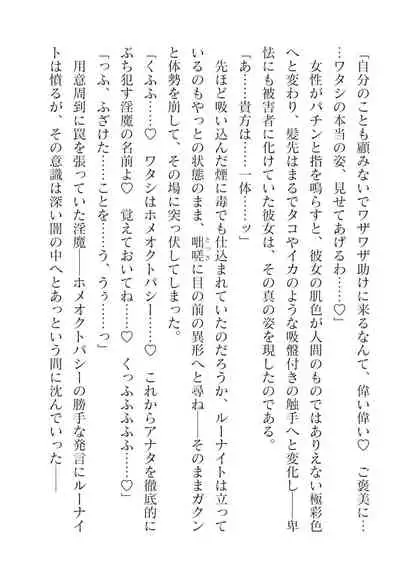 「自分のことも顧みないでワザワザ助けに来るなんて、偉い偉い♡　ご褒美に…
…ワタシの本当の姿、見せてあげるわ……♡」
　女性がパチンと指を鳴らすと、彼女の肌色が人間のものではありえない極彩色
へと変わり、髪先はまるでタコやイカのような吸盤付きの触手へと変化し――卑
怯にも被害者に化けていた彼女は、その真の姿を現したのである。
「あ……貴方は……一体……ッ」
　先ほど吸い込んだ煙に毒でも仕込まれていたのだろうか、ルーナイトは立って
いるのもやっとの状態のまま、咄嗟に目の前の異形へと尋ね――そのままガクン
とっさ
と体勢を崩して、その場に突っ伏してしまった。
「くふふ……♡　ワタシはホメオクトパシー……♡　これからアナタを徹底的に
ぶち犯す淫魔の名前よ♡　覚えておいてね……♡　くっふふふふふ……♡」
「っふ、ふざけた……ことを……う、うぅ……っ」
　用意周到に罠を張っていた淫魔――ホメオクトパシーの勝手な発言にルーナイ
トは憤るが、その意識は深い闇の中へとあっという間に沈んでいった――